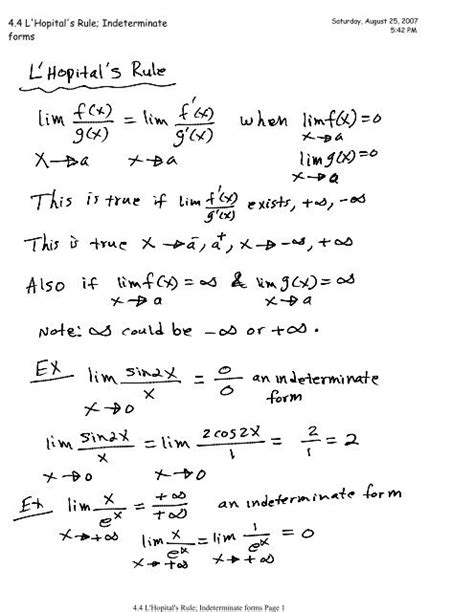 4.4 L'Hopital's Rule; Indeterminate
forms
Saturday, August 25, 2007
5:42 PM
L'Hopital's Rule
lim f(x)/g(x) = lim f'(x)/g'(x) when lim f(x)=0
x→a x→a x→a
lim g(x)=0
x→a
This is true if lim f'(x)/g'(x) exists, +∞, -∞
This is true x→a⁻, a⁺, x→-∞, +∞
Also if lim f(x) = ∞ & lim g(x) = ∞
x→a x→a
Note: ∞ could be -∞ or +∞.
Ex lim sin2x/x = 0/0 an indeterminate
x→0 form
lim sin2x/x = lim 2cos2x/1 = 2/1 = 2
x→0 x→0
Ex lim x/eˣ = +∞/+∞ an indeterminate form
x→+∞ lim x/eˣ = lim 1/eˣ = 0
x→+∞ x→+∞
4.4 L'Hopital's Rule; Indeterminate forms Page 1